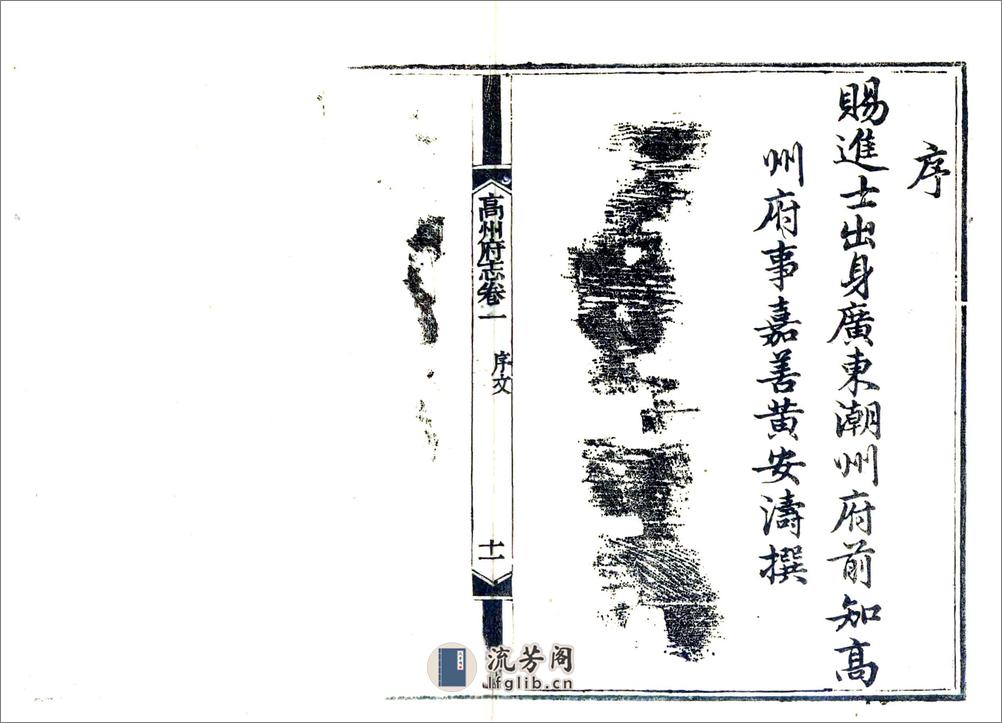 序
賜進士出身廣東潮州府前知高
州府事嘉善黄安濤撰
高州府志卷一
序文
十一
流芳阁
lfglib.cn